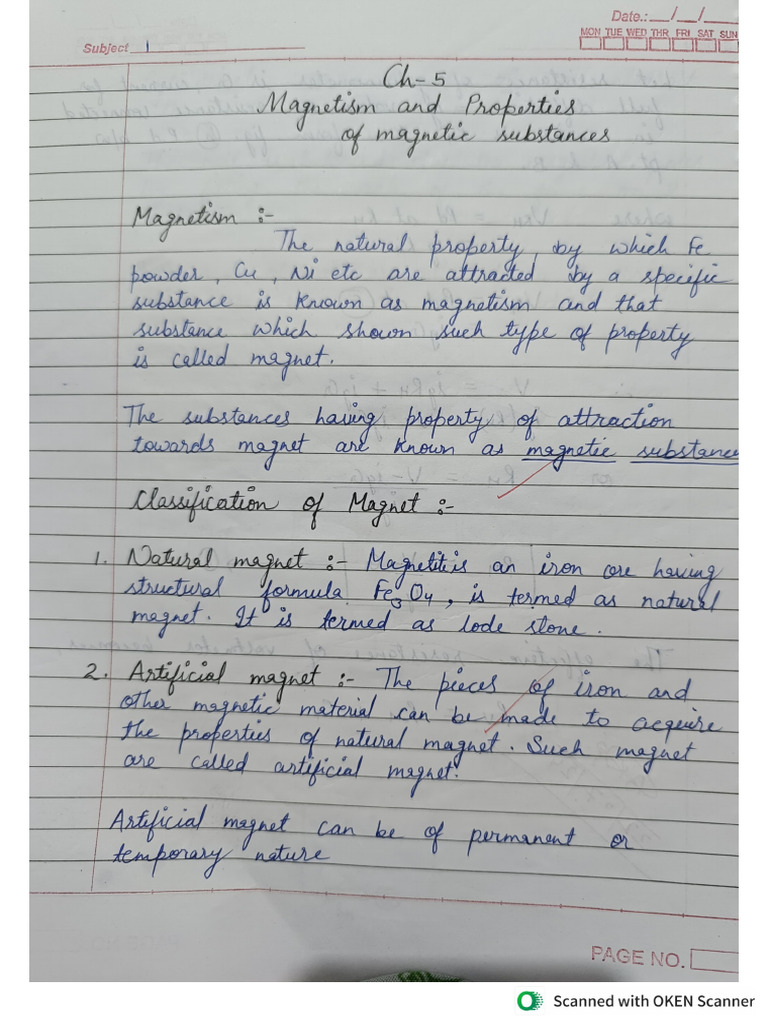 Date.:__/__/__
MON TUE WED THR FRI SAT SUN
Subject 1
Ch-5
Magnetism and Properties
of magnetic substances
Magnetism :-
The natural property by which Fe
powder, Cu, Ni etc are attracted by a specific
substance is known as magnetism and that
substance which shown such type of property
is called magnet.
The substances having property of attraction
towards magnet are known as magnetic substance
Classification of Magnet :-
1. Natural magnet :- Magnetitis an iron ore having
structural formula Fe3O4, is termed as natural
magnet. It is termed as lode stone.
2. Artificial magnet :- The pieces of iron and
other magnetic material can be made to acquire
the properties of natural magnet. Such magnet
are called artificial magnet.
Artificial magnet can be of permanent or
temporary nature
PAGE NO.
Scanned with OKEN Scanner